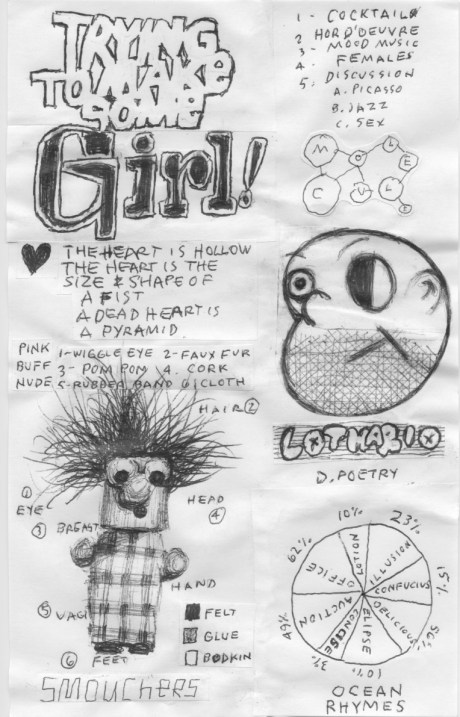 TRYING
TO MAKE
SOME
Girl!
1- COCKTAILS
2 HORD'OEUVRE
3- MOOD MUSIC
4. FEMALES
5. DISCUSSION
A. PICASSO
B. JAZZ
C. SEX
MOLE
CULE
THE HEART IS HOLLOW
THE HEART IS THE
SIZE & SHAPE OF
A FIST
A DEAD HEART IS
A PYRAMID
PINK 1-WIGGLE EYE 2-FAUX FUR
BUFF 3- POM POM 4. CORK
NUDE 5-RUBBER BAND 6 CLOTH
HAIR 2
1
EYE
HEAD
4
3 BREAST
HAND
5 VAG
FELT
GLUE
BODKIN
6 FEET
SMOUCHERS
LOTHARIO
D. POETRY
10% 23%
62% 15%
49%
3% 10%
LOTION
ILLUSION
CONFUCIUS
DELICIOUS
ELIPSE
CONCISE
AUCTION
OFFICE
OCEAN
RHYMES